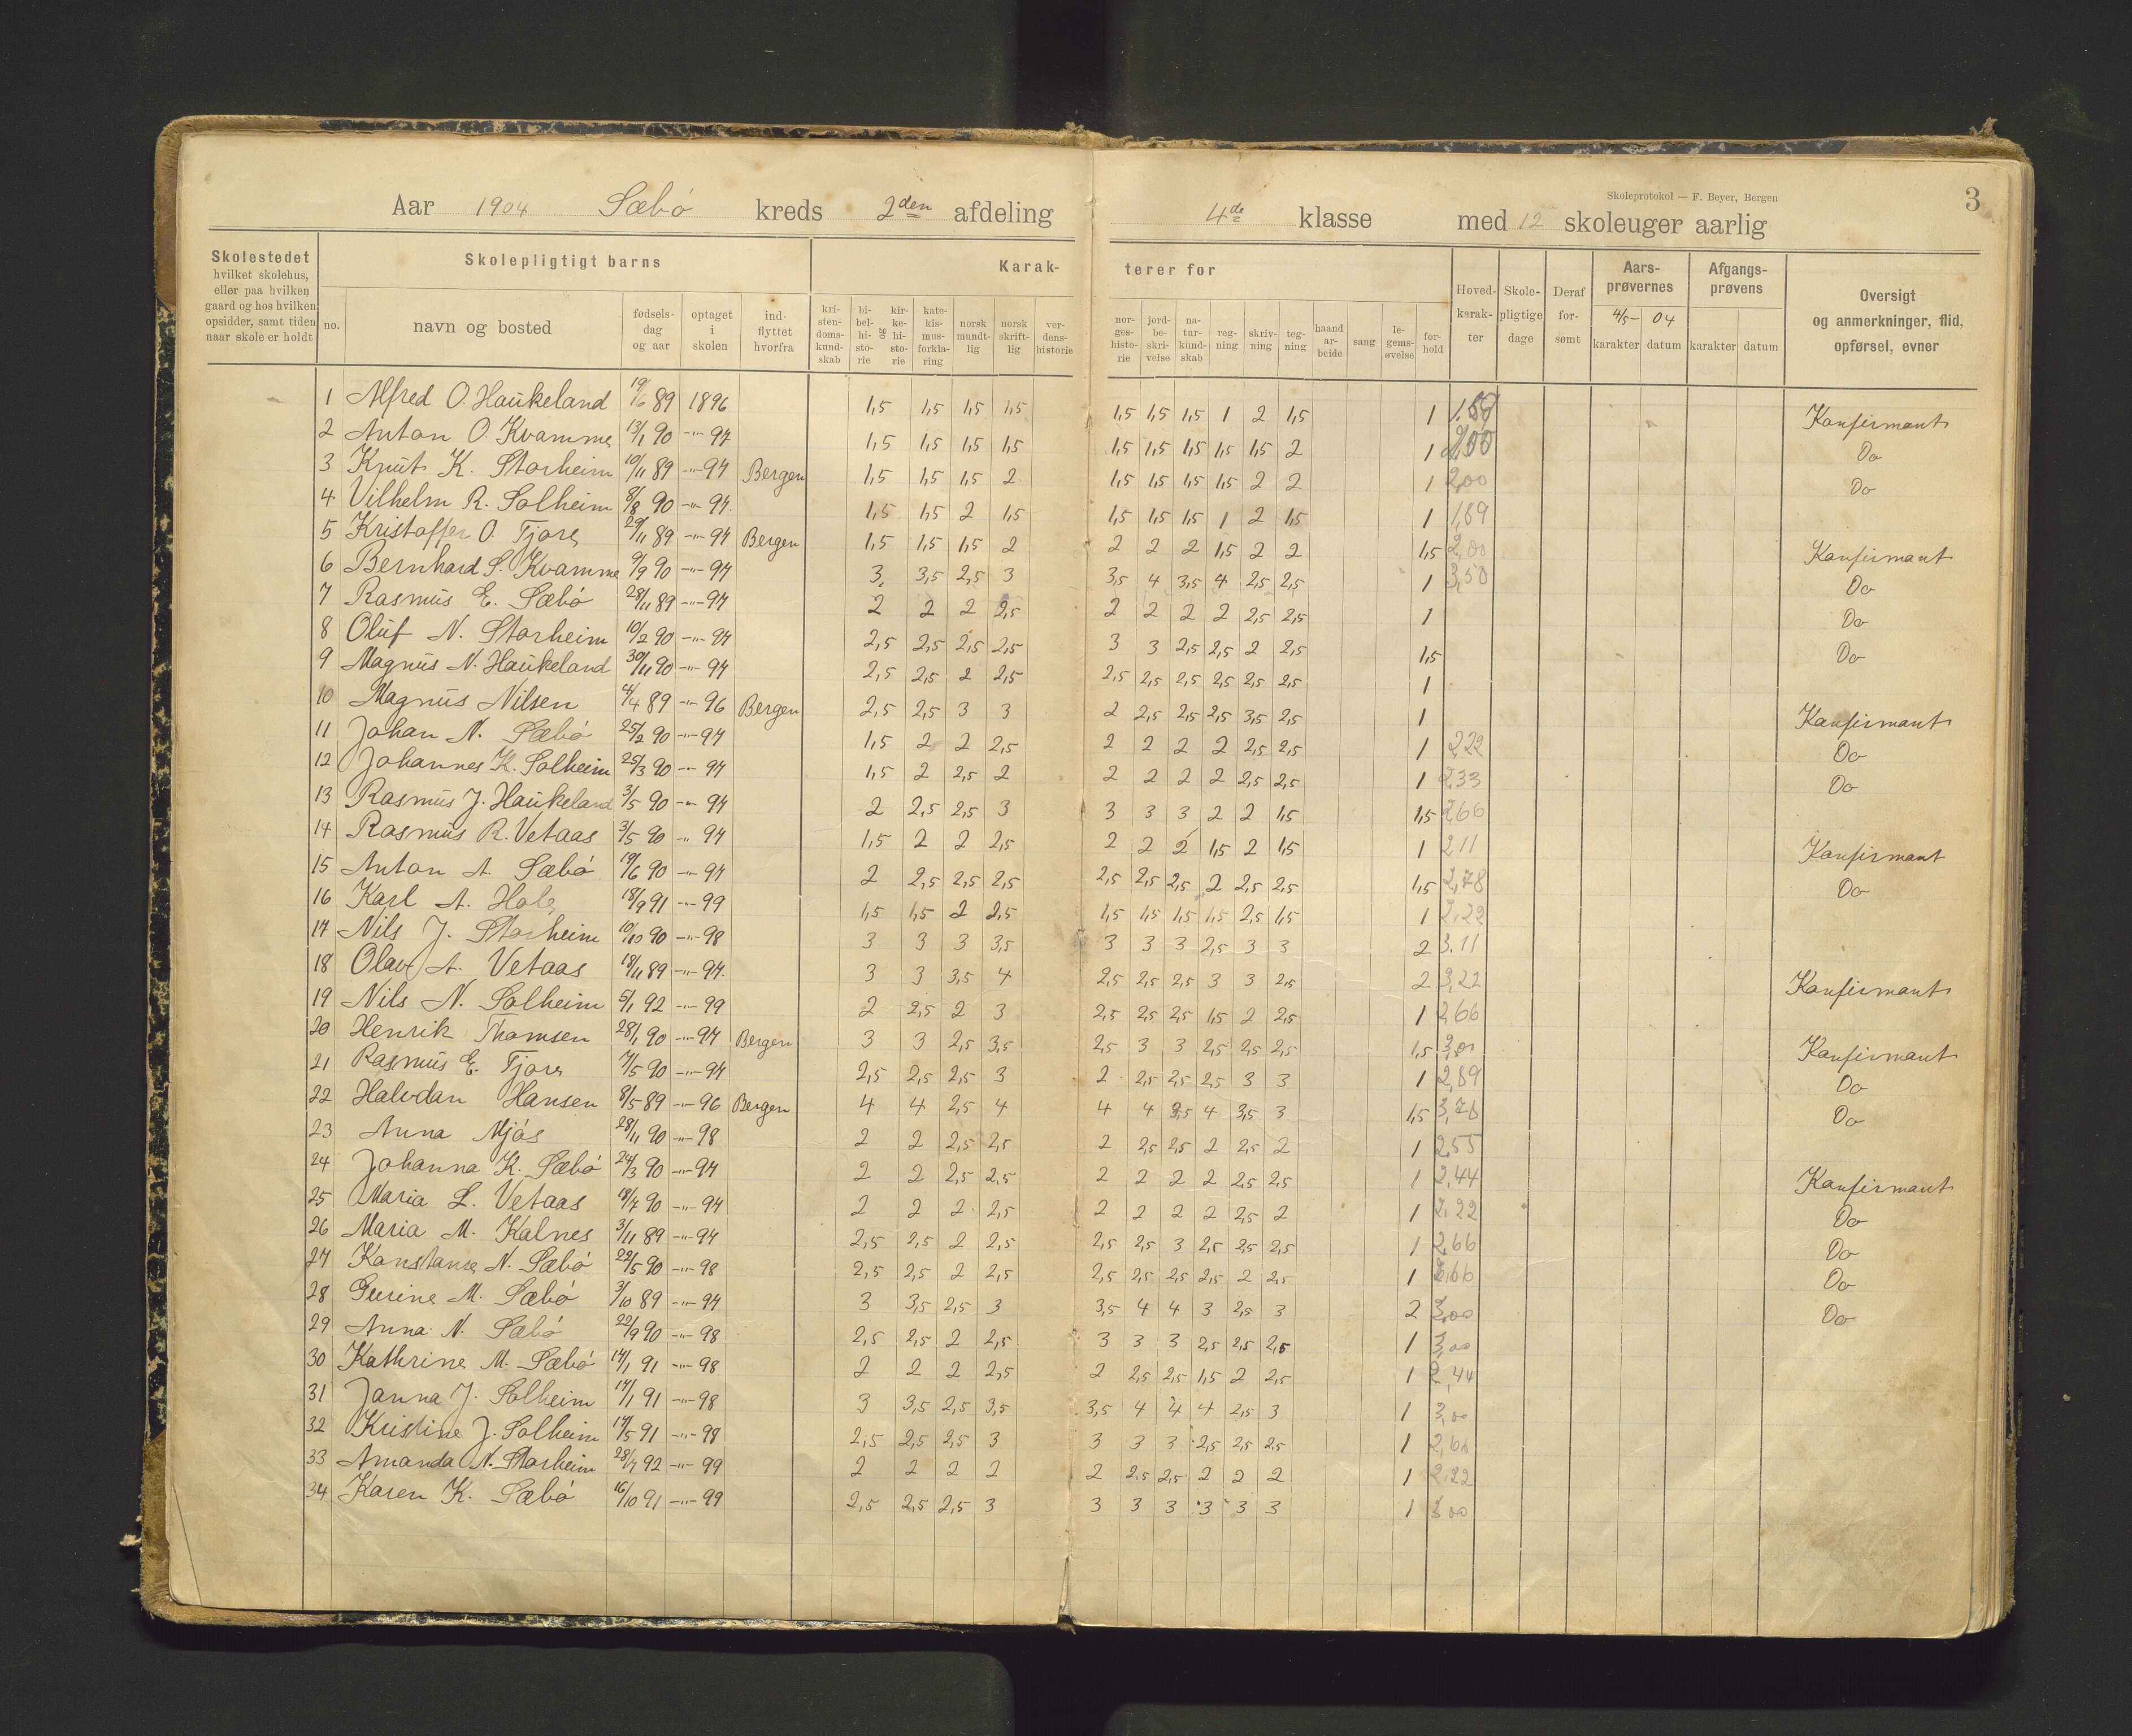 Skoleprotokol — F. Beyer, Bergen
3
Aar 1904 Sæbó kreds 2den afdeling 4de klasse med 12 skoleuger aarlig
Skolestedet hvilket skolehus, eller paa hvilken gaard og hos hvilken opsidder, samt tiden naar skole er holdt
Skolepligtigt barns
Karak- terer for
no. navn og bosted fødsels- dag og aar optaget i skolen ind- flyttet hvorfra
kri- sten- doms- kund- skab bi- bel- hi- sto- rie og kir- ke- hi- sto- rie kate- kis- mus- forkla- ring norsk mundt- lig norsk skrift- lig ver- dens- historie
nor- ges- histo- rie jord- be- skri- velse na- tur- kund- skab reg- ning skriv- ning teg- ning haand ar- beide sang le- gems- øvelse for- hold
Hoved- karak- ter Skole- pligtige dage Deraf for- sømt
Aars- prøvernes 4/5- 04 karakter datum
Afgangs- prøvens karakter datum
Oversigt og anmerkninger, flid, opførsel, evner
1 Alfred O. Haukeland 19/6 89 1896 1,5 1,5 1,5 1,5 1,5 1,5 1,5 1 2 1,5 1 Konfirmant
2 Anton O. Kvamme 13/1 90 -"- 97 1,5 1,5 1,5 1,5 1,5 1,5 1,5 1,5 1,5 2 1 2,00 Do
3 Knut K. Storheim 10/11 89 -"- 97 Bergen 1,5 1,5 1,5 2 1,5 1,5 1,5 1,5 2 2 1 2,00 Do
4 Vilhelm R. Solheim 8/8 90 -"- 97. 1,5 1,5 2 1,5 1,5 1,5 1,5 1 2 1,5 1 1,89
5 Kristoffer O. Tjore 29/11 89 -"- 97 Bergen 1,5 1,5 1,5 2 2 2 2 1,5 2 2 1,5 2,00 Konfirmant
6 Bernhard S. Kvamme 9/9 90 -"- 97 3 3,5 2,5 3 3,5 4 3,5 4 2,5 2,5 1 3,50 Do
7 Rasmus E. Sæbó 28/11 89 -"- 97 2 2 2 2,5 2 2 2 2 2,5 2,5 1 Do
8 Oluf N. Storheim 10/2 90 -"- 97 2,5 2,5 2,5 2,5 3 3 2,5 2,5 2 2,5 1,5 Do
9 Magnus N. Haukeland 30/11 90 -"- 97 2,5 2,5 2 2,5 2,5 2,5 2,5 2,5 2,5 2,5 1
10 Magnus Nilsen 4/4 89 -"- 96 Bergen 2,5 2,5 3 3 2 2,5 2,5 2,5 3,5 2,5 1 Konfirmant
11 Johan N. Sæbó 25/2 90 -"- 97 1,5 2 2 2,5 2 2 2 2 2,5 2,5 1 2,22 Do
12 Johannes K. Solheim 25/3 90 -"- 97 1,5 2 2,5 2 2 2 2 2 2,5 2,5 1 2,33 Do
13 Rasmus J. Haukeland 3/5 90 -"- 97 2 2,5 2,5 3 3 3 3 2 2 1,5 1,5 2,66
14 Rasmus R. Vetaas 3/5 90 -"- 97 1,5 2 2 2,5 2 2 2 1,5 2 1,5 1 2,11 Konfirmant
15 Anton A. Sæbó 19/6 90 -"- 97 2 2,5 2,5 2,5 2,5 2,5 2,5 2 2,5 2,5 1,5 2,78 Do
16 Karl A. Hole 18/9 91 -"- 99 1,5 1,5 2 2,5 1,5 1,5 1,5 1,5 2,5 1,5 1 2,22
17 Nils J. Storheim 10/10 90 -"- 98 3 3 3 3,5 3 3 3 2,5 3 3 2 3.11
18 Olav A. Vetaas 18/11 89 -"- 97. 3 3 3,5 4 2,5 2,5 2,5 3 3 2,5 2 3,22 Konfirmant
19 Nils N. Solheim 5/1 92 -"- 99 2 2,5 2 3 2,5 2,5 2,5 1,5 2 2,5 1 2,66
20 Henrik Thomsen 28/1 90 -"- 97 Bergen 3 3 2,5 3,5 2,5 3 3 2,5 2,5 2,5 1,5 3,00 Konfirmant
21 Rasmus E. Tjore 7/5 90 -"- 97 2,5 2,5 2,5 3 2 2,5 2,5 2,5 3 3 1 2,89 Do
22 Halvdan Hansen 8/5 89 -"- 96 Bergen 4 4 2,5 4 4 4 3,5 4 3,5 3 1,5 3,78 Do
23 Anna Mjós 28/11 90 -"- 98 2 2 2,5 2,5 2 2,5 2,5 2 2,5 2 1 2,55
24 Johanna K. Sæbó 24/3 90 -"- 97 2 2 2,5 2,5 2 2 2 2 2,5 2,5 1 2,44 Konfirmant
25 Maria L. Vetaas 18/7 90 -"- 97 2 2 2 2,5 2 2 2 2 2,5 2 1 2,22 Do
26 Maria M. Kalnes 3/11 89 -"- 97 2,5 2,5 2 2,5 2,5 2,5 3 2,5 2,5 2,5 1 2,66 Do
27 Konstanse N. Sæbó 22/5 90 -"- 98 2,5 2,5 2 2,5 2,5 2,5 2,5 2,5 2 2,5 1 2,66 Do
28 Gurine M. Sæbó 3/10 89 -"- 97 3 3,5 2,5 3 3,5 4 4 3 2,5 3 2 3,00 Do
29 Anna N. Sæbó 22/9 90 -"- 98 2,5 2,5 2 2,5 3 3 3 2,5 2,5 2,5 1 3,00
30 Kathrine M. Sæbó 14/1 91 -"- 98 2 2 2 2,5 2 2,5 2,5 1,5 2 2,5 1 2,44
31 Janna J. Solheim 14/1 91 -"- 98 3 3,5 2,5 3,5 3,5 4 4 4 2,5 3 1 3,00
32 Kristine J. Solheim 14/5 91 -"- 98 2,5 2,5 2,5 3 3 3 3 2,5 2,5 2,5 1 2,66
33 Amanda N. Storheim 28/7 92 -"- 99 2 2 2 2 2 2,5 2,5 2 2 2 1 2,22
34 Karen K. Sæbó 16/10 91 -"- 99 2,5 2,5 2,5 3 3 3 3 3 3 3 1 3,00